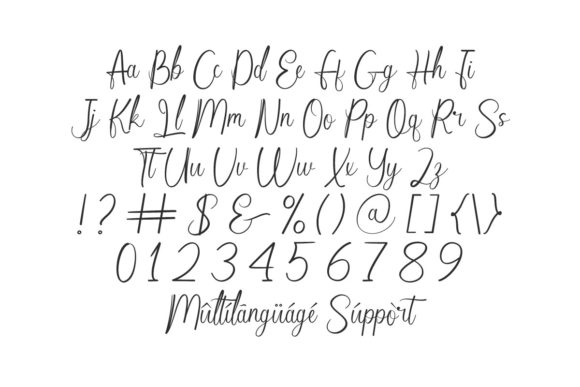 Aa Bb Cc Dd Ee Ff Gg Hh Ii
Jj Kk Ll Mm Nn Oo Pp Qq Rr Ss
Tt Uu Vv Ww Xx Yy Zz
! ? # $ & % ( ) @ [ ] { \ }
0 1 2 3 4 5 6 7 8 9
Mûltílângüágé Súppòrt